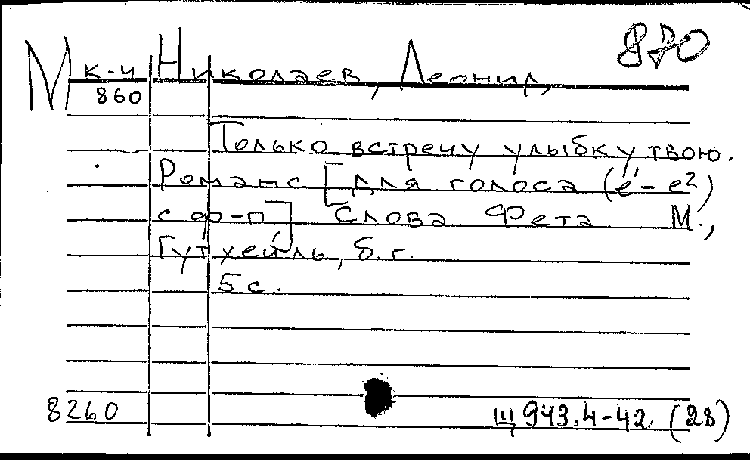 М к-ч Николаев, Леонид.
870
860
Только встречу улыбку твою.
Романс [для голоса (e¹-e²)
с ф-п] Слова Фета М.,
Гутхейль, б.г.
5 с.
8260
Щ943.4-42. (28)